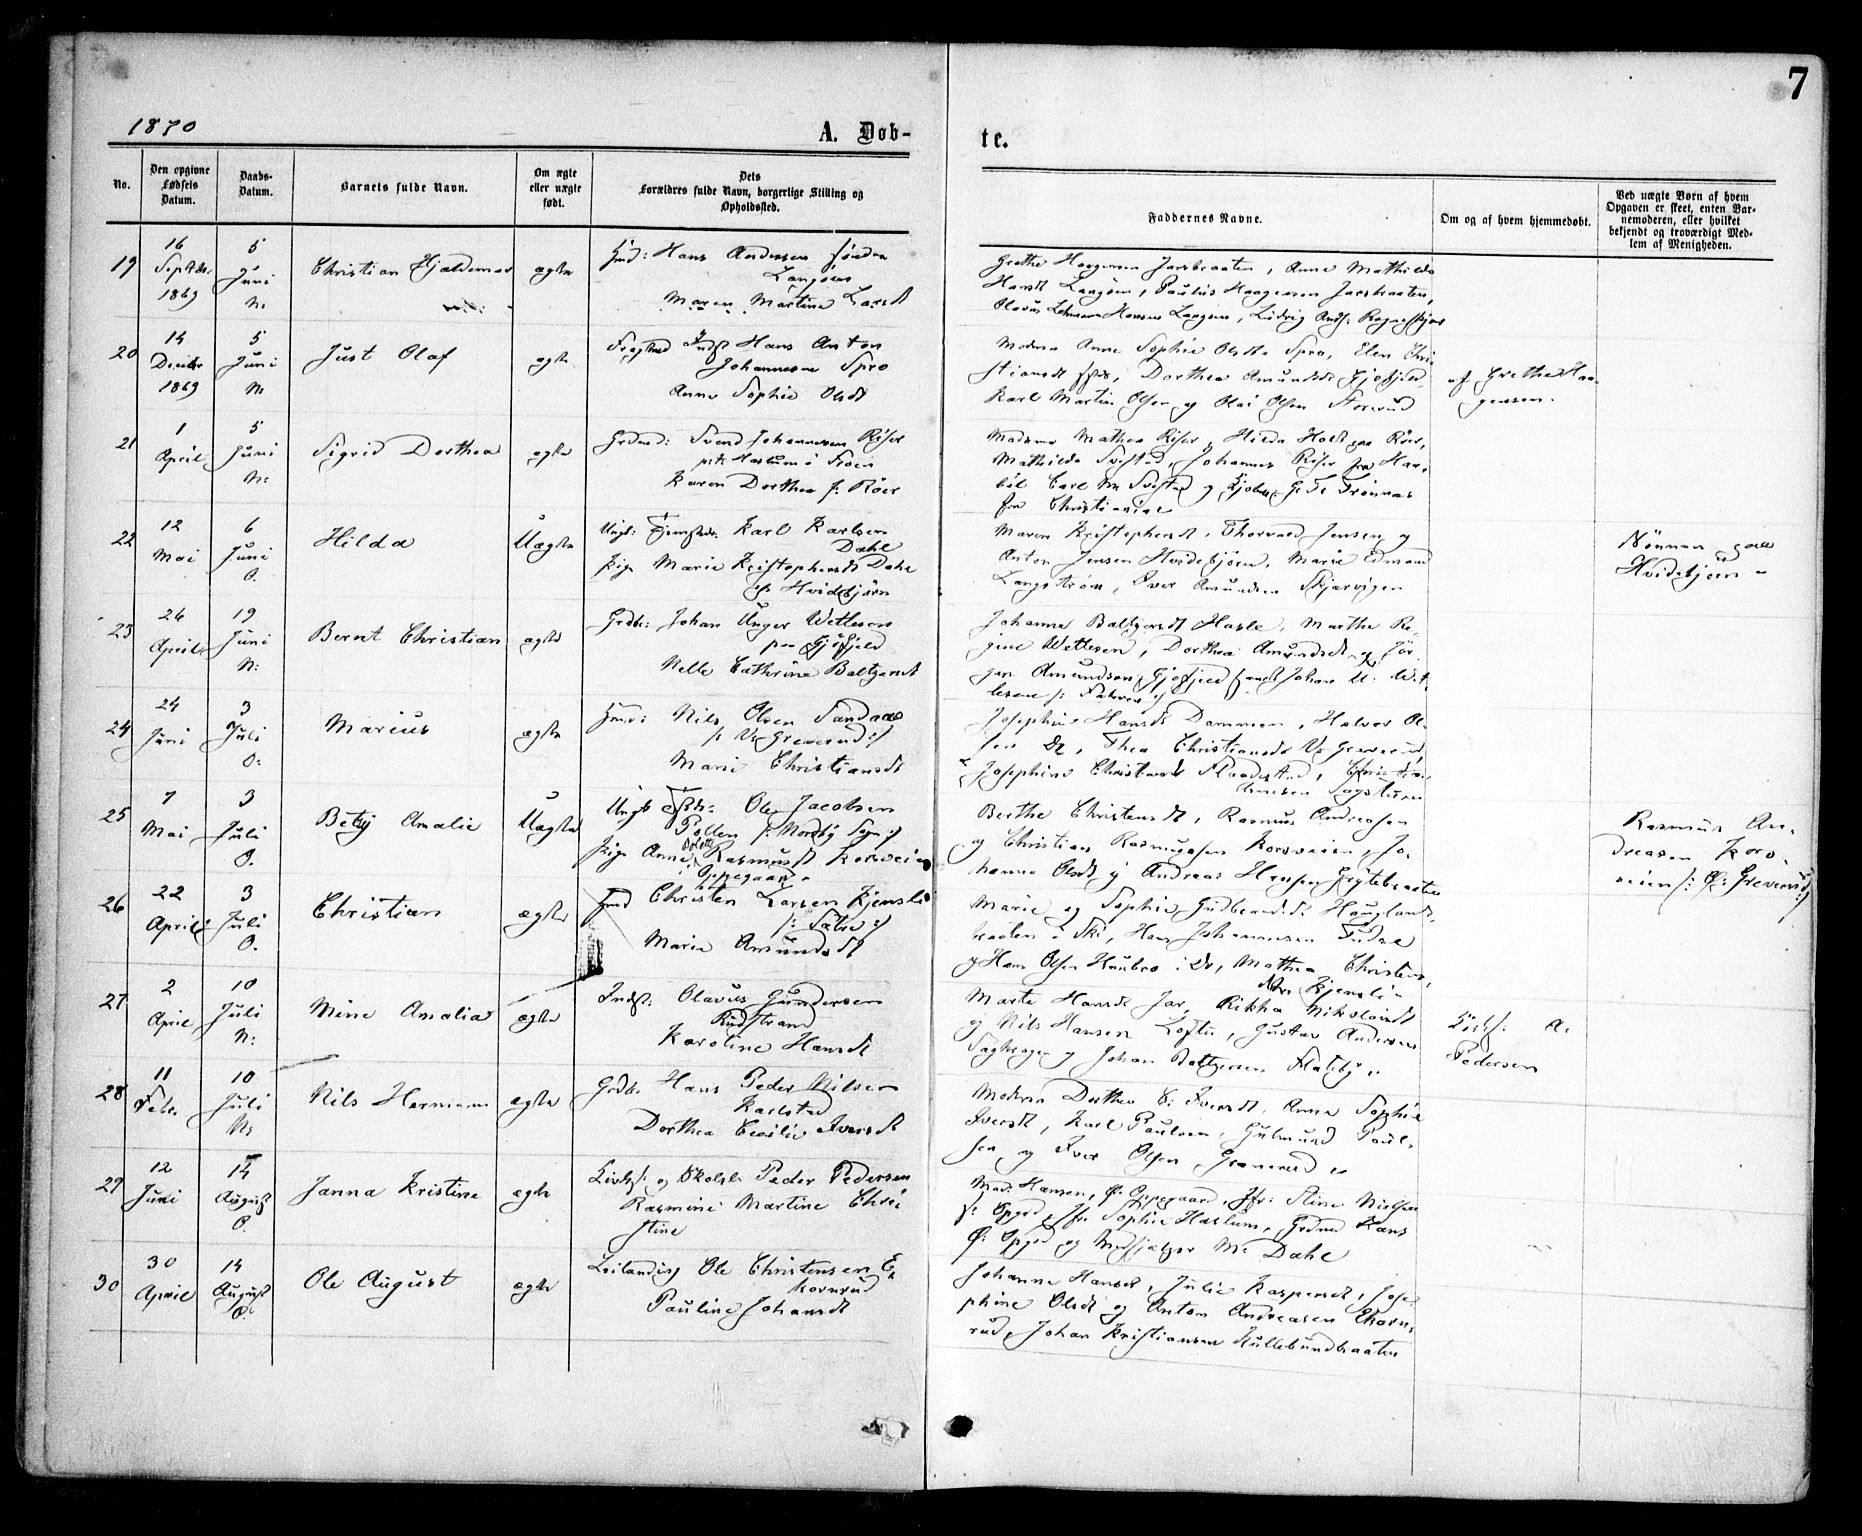 7
1870
A. Døb-
te.
No.
Den opgivne Fødsels Datum.
Daabs-Datum.
Barnets fulde Navn.
Om ægte eller uægte født.
Dets Forældres fulde Navn, borgerlige Stilling og Opholdssted.
Faddernes Navne.
Om og af hvem hjemmedøbt.
Ved uægte Børn af hvem Opgaven er skeet, enten Barnemoderen, eller hvilket bekjendt og troværdigt Medlem af Menigheden.
19
16 Septbr. 1869
5 Juni N.
Christian Hjaldemar
ægte
Hans Andersen Søndre
Langøen
Maren Martine Larsdt
Grethe Haagensen Jarsbraaten, Anne Mathilde
Hansdt Langøen, Paulus Haagensen Jarsbraaten,
20
14 Decbr 1869
5 Juni N
Just Olaf
ægte
Hans Anton
Johannesen Spro
Anne Sophie Olsdt
Moderen Anne Sophie Olsdtr Spro, Elen Chri-
Dorthea Amundsdt Gjøfjeld,
Karl Martin Olsen og Olai Olsen Storerud
af Grethe Haa-
gensen.
21
1 April
5 Juni N.
Sigrid Dorthea
ægte
Grdmd: Svend Johannesen Riser
Karen Dorthea f: Röer
Madame Mathea Riser, Hilda Holt paa Röer,
Mathilde Svestad, Johannes Riser fra Haa-
fra Christiania
22
12 Mai
6 Juni O.
Hilda
Uægte
Ungk: Karl Karlsen
Dahl
Pige Marie Kristophersdt Dahl
Hvidebjörn
Maren Kristophersdt, Thorvald Jensen og
Anton Jensen Hvidebjörn, Marie Edmand
Langström, Iver Amundsen Skjærvigen
Hvidebjörn
23
26 April
19 Juni N:
Bernt Christian
ægte
Grdbr: Johan Unger Wetlesen
paa Gjöfjeld
Nelle Cathrine Baltzersdt
Johanne Baltzersdt Hasle, Marthe Re-
gine Wetlesen, Dorthea Amundsdt og Jör-
gen Amundsen Gjøfjeld samt Johan U. Wet-
lesen
24
24 Juni
3 Juli O:
Marius
ægte
Nils Olsen Sandaas
/: V: Greverud :/
Marie Christiansdt
Josephine Hansdt Dammen, Halvor Ol-
sen Do, Thea Christiansdt V: Greverud,
25
7 Mai
3 Juli O.
Betzy Amalie
Uægte
Ungk Ole Jacobsen
Pollen /: Nordby Sogn :/
Pige Anne Bolette Rasmusdt Korsveien
Oppegaard
Berthe Christensdt, Rasmus Andreasen
og Christian Rasmussen Korsveien, Jo-
hanne Olsdt og Andreas Hansen Grytebraaten
Rasmus An-
dreasen Kors-
veien /: Ø: Greverud :/
26
22 April
3 Juli O.
Christian
ægte
Christen Larsen Kjensli
/: Sætre :/
Marie Amundsdt
Marie og Sophie Gudbrandsdt Hauglands-
Ski, Hans Johannesen
og Hans Olsen i Do, Mathea Christens-
Kjensli
27
2 April
10 Juli N:
Mine Amalia
ægte
Indst: Olavus Gundersen
Rudstrand
Karoline Hansdt
Marte Hansdt Jar, Rikka Nikolaisdt
og Nils Hansen Lofter, Gustav Andersen
og Johan Baltzersen Flateby
Kirks: A.
Pedersen
28
11 Febr.
10 Juli N:
Nils Hermann
ægte
Grdbr. Hans Peder Nilsen
Karlstad
Dorthea Cecilie Iversdt
Moderen Dorthea C: Iversdt, Anne Sophie
Iversdt, Karl Paulsen, Gulmund Paul-
sen og Iver Olsen Granerud
29
12 Juni
14 August O.
Janna Kristine
ægte
Kirks: og Skolel: Peder Pedersen
Rasmine Martine Chri-
stine
Mad: Hansen, Ø: Oppegaard, Jfr: Stine Nielsen
Jfr: Sophie Haslum, Grdmd Hans
Ø: Opgrd og Medhjælper M. Dahl
30
30 April
14 August O.
Ole August
ægte
Leilænding Ole Christensen E-
kornrud
Pauline Johansdt
Johanne Hansdt, Julie Kaspersdt, Jose-
phine Olsdt og Anton Andreasen Ekorn-
rud, Johan Kristiansen Kullebundbraaten